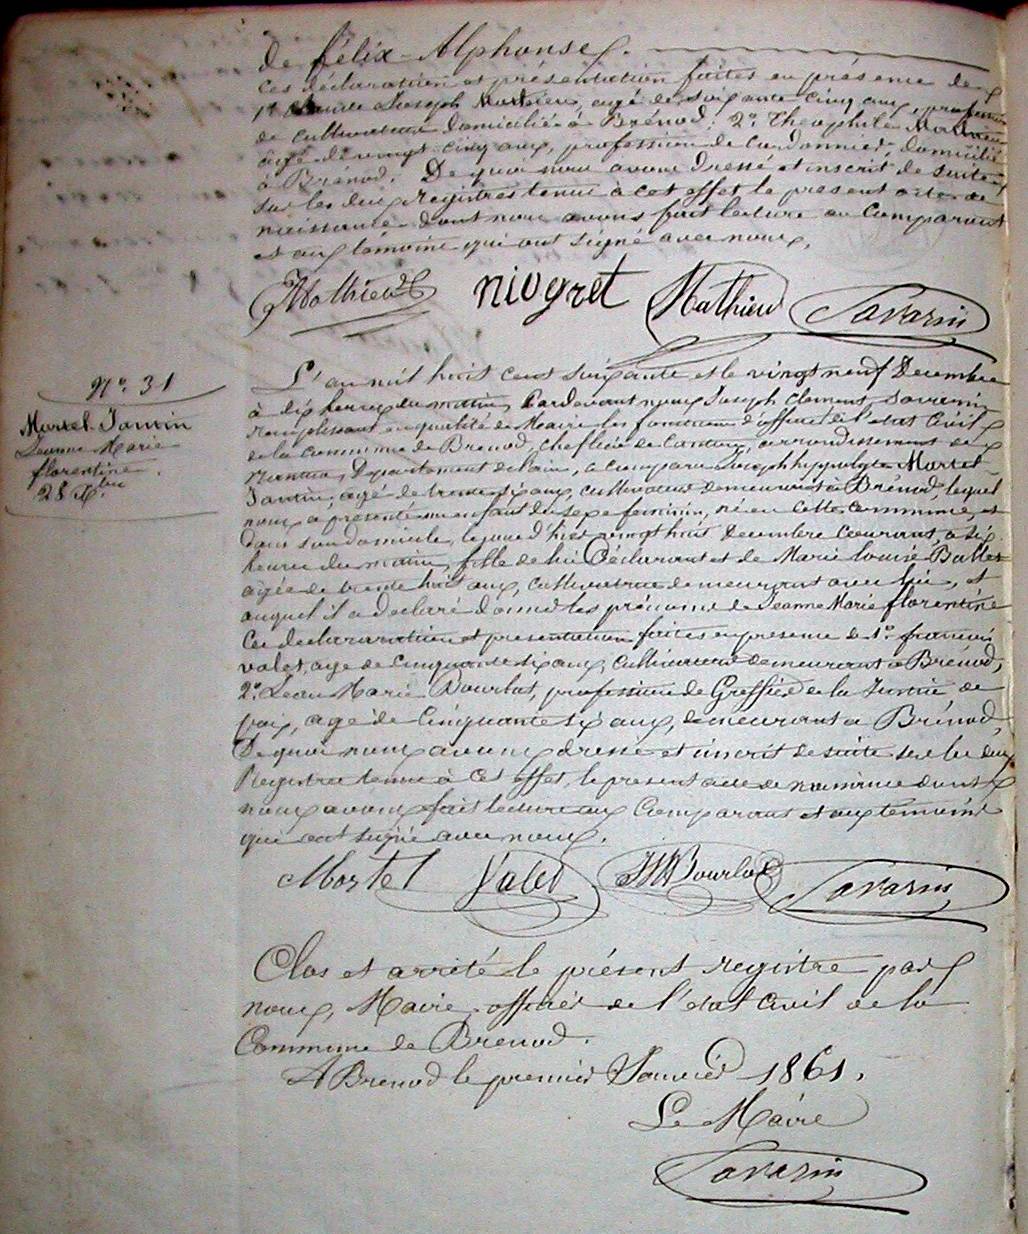 de félix-Alphonse.
ces déclaration et présentation faites en présence de
1° Claude Joseph Mathieu, agé de soixante cinq ans, profession
de cultivateur domicilié à Brénod; 2° Théophile Mathieu
âgé de vingt cinq ans, profession de Cordonnier, domicilié
à Brénod. De quoi nous avons dressé et inscrit de suite
sur les deux registres tenus à cet effet le présent acte de
naissance dont nous avons fait lecture au Comparant
et aux témoins qui ont signé avec nous,
Mathieu niogret Mathieu Savarin
N° 31
Martel-Jantin
Jeanne Marie
florentine
28 Xbre
L'an mil huit cent soixante et le vingt neuf Decembre
à dix heures du matin, Pardevant nous Joseph Clement Savarin
remplissant en qualité de Maire les fonctions d'officier de l'etat Civil
de la commune de Brenod, chef lieu de Canton, arrondissement de
Nantua, Departement de l'ain, a comparu Joseph hippolyte Martel-
Jantin, agé de trente six ans, cultivateur demeurant à Brénod, lequel
nous a présenté un enfant du sexe feminin, né en cette commune, et
dans son domicile, le jour d'hier vingt huit Decembre Courant, à six
heures du matin, fille de lui Déclarant et de Marie louise Ballet
agée de trente huit ans, cultivatrice demeurant avec lui, et
auquel il a declaré donner les prénoms de Jeanne Marie florentine
Ces declaration et presentation faites en presence de 1° francois
valet, age de Cinquante six ans, Cultivateur demeurant à Brénod,
2° Jean Marie Bourbat, profession de Greffier de la Justice de
paix, agé de Cinquante six ans, demeurant a Brénod,
De quoi nous avons dressé et inscrit de suite sur les deux
Registres tenus à cet effet, le present acte de naissance dont
nous avons fait lecture aux Comparant et aux temoins
qui ont signé avec nous.
Martel Valet JMBourbat Savarin
Clos et arrêté le présent registre par
nous, Maire, officier de l'etat Civil de la
Commune de Brenod.
A Brenod le premier Janvier 1861.
Le Maire
Savarin